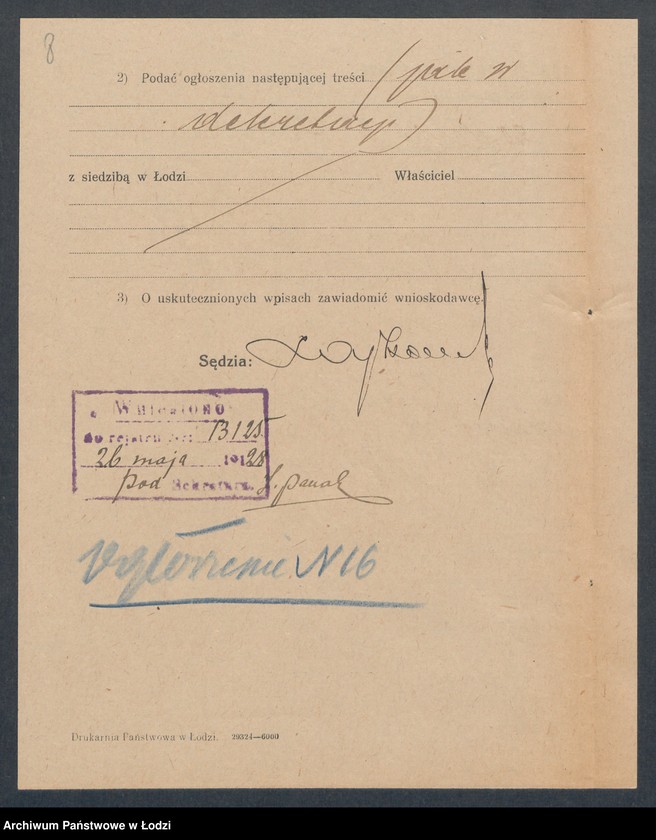 8
2) Podać ogłoszenia następującej treści (jak w
dekrecie)
z siedzibą w Łodzi Właściciel
3) O uskutecznionych wpisach zawiadomić wnioskodawcę.
Sędzia:
Wniesiono
do rejestru Nr. 13125
26 maja 1928
pod Sekretarz
Ogłoszenie N 16
Drukarnia Państwowa w Łodzi. 29324—6000
Archiwum Państwowe w Łodzi